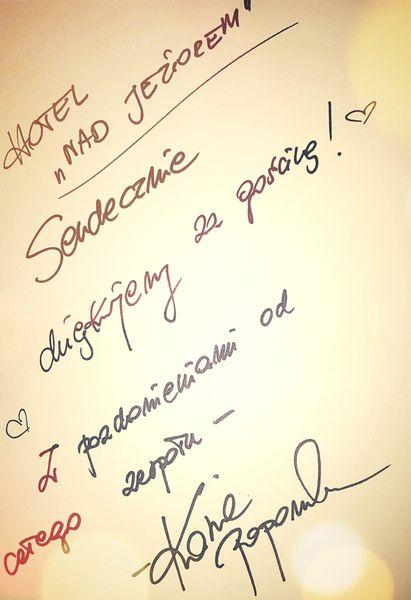 HOTEL
„NAD JEZIOREM"
Serdecznie
dziękujemy za gościnę! ♡
♡ Z pozdrowieniami od
całego zespołu –
Kasia